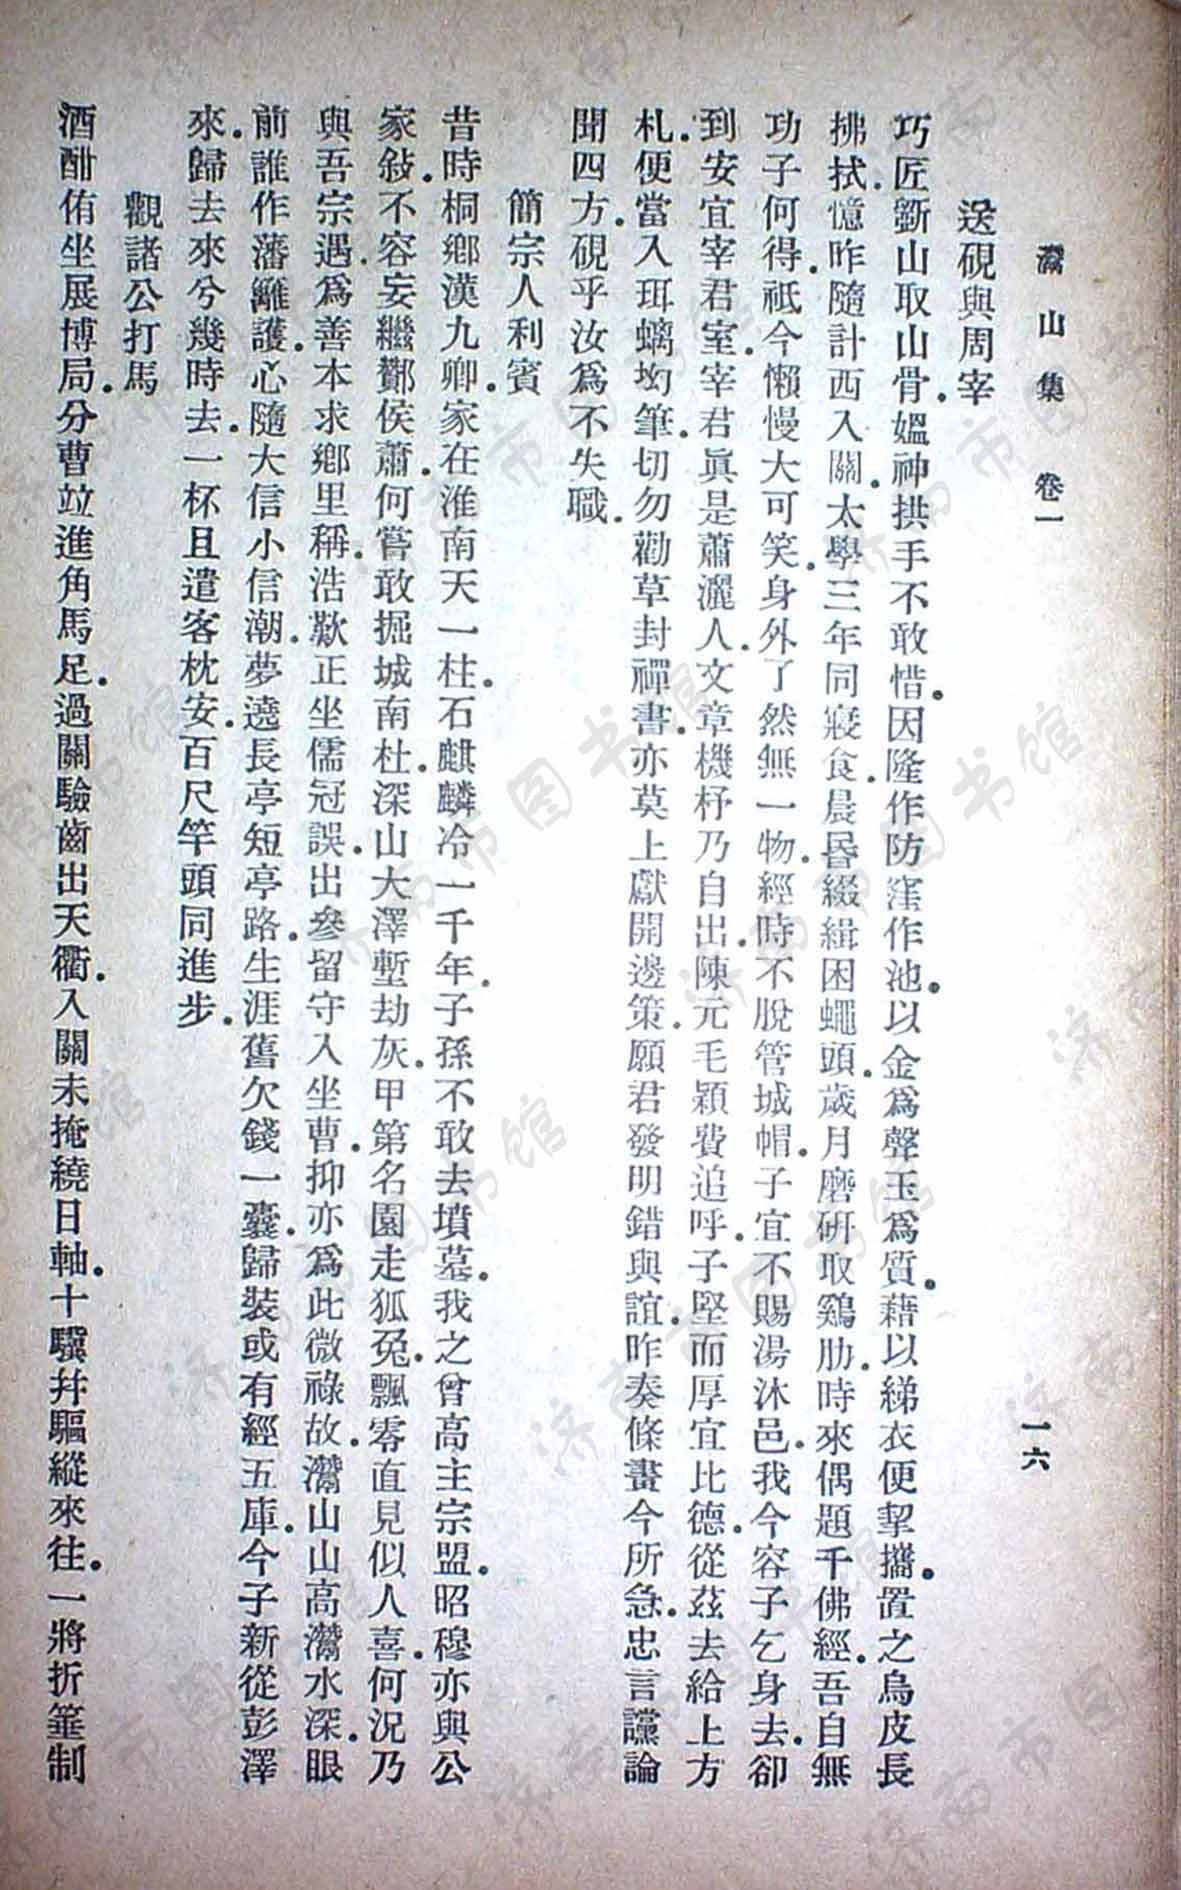 灊山集　卷一　　一六
送硯與周宰
巧匠斲山取山骨。媼神拱手不敢惜。因隆作防窪作池。以金爲聲玉爲質。藉以綈衣便挈攜。置之烏皮長
拂拭。憶昨隨計西入關。太學三年同寢食。晨昬綴緝困蠅頭。歲月磨研取鷄肋。時來偶題千佛經。吾自無
功子何得。祗今懶慢大可笑。身外了然無一物。經時不脫管城帽。子宜不賜湯沐邑。我今容子乞身去。卻
到安宜宰君室。宰君眞是蕭灑人。文章機杼乃自出。陳元毛穎費追呼。子堅而厚宜比德。從茲去給上方
札。便當入珥螭坳筆。切勿勸草封禪書。亦莫上獻開邊策。願君發明錯與誼。昨奏條畫今所急。忠言讜論
聞四方。硯乎汝爲不失職。
簡宗人利賓
昔時桐鄕漢九卿。家在淮南天一柱。石麒麟冷一千年。子孫不敢去墳墓。我之曾高主宗盟。昭穆亦與公
家敍。不容妄繼酇侯蕭。何嘗敢掘城南杜。深山大澤塹劫灰。甲第名園走狐兔。飄零直見似人喜。何況乃
與吾宗遇。爲善本求鄕里稱。浩歎正坐儒冠誤。出參留守入坐曹。抑亦爲此微祿故。灊山山高灊水深。眼
前誰作藩籬護。心隨大信小信潮。夢遶長亭短亭路。生涯舊欠錢一囊。歸裝或有經五庫。今子新從彭澤
來。歸去來兮幾時去。一杯且遣客枕安。百尺竿頭同進步。
觀諸公打馬
酒酣侑坐展博局。分曹竝進角馬足。過關驗齒出天衢。入關未掩繞日軸。十驥幷驅縱來往。一將折箠制